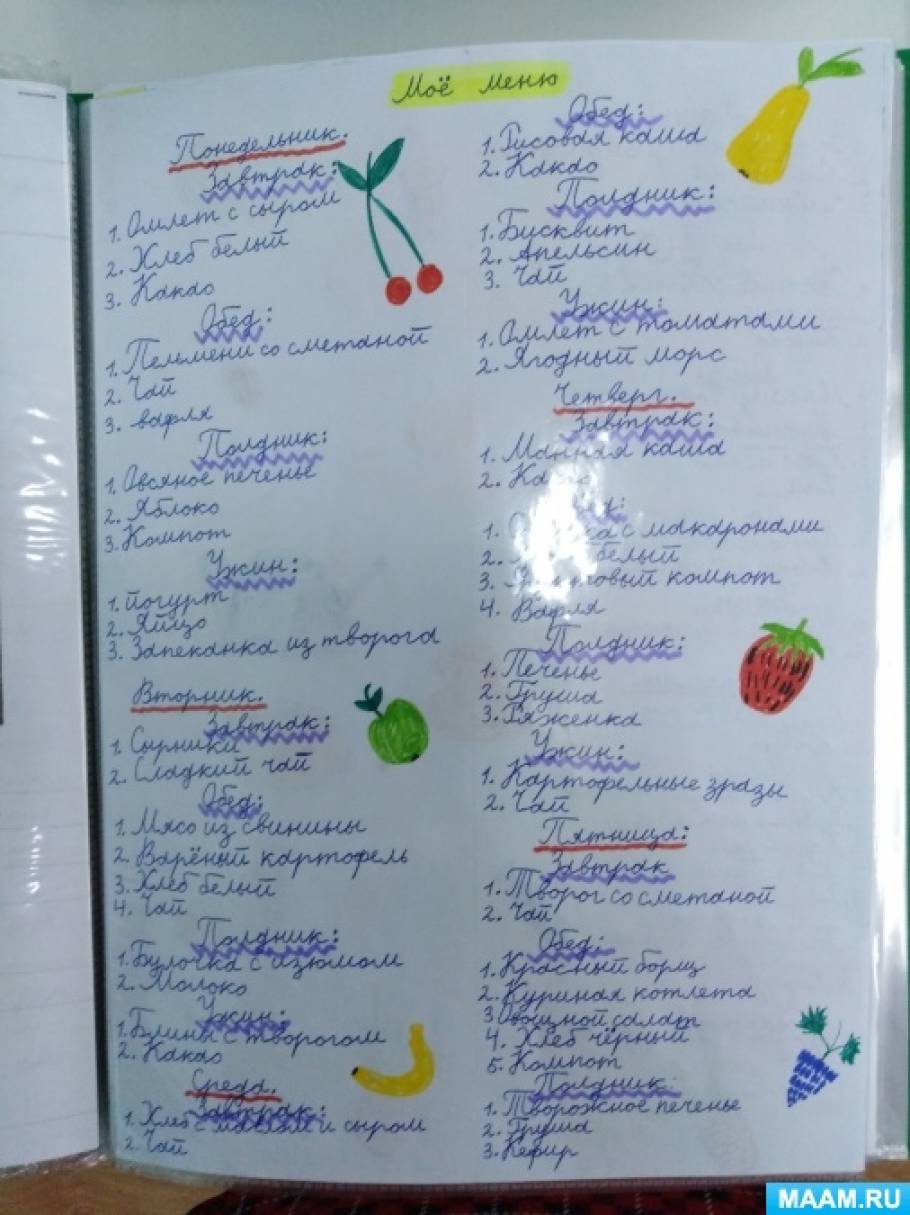 Моё меню
Понедельник.
Завтрак:
1. Омлет с сыром
2. Хлеб белый
3. Какао
Обед:
1. Пельмени со сметаной
2. Чай
3. вафля
Полдник:
1. Овсяное печенье
2. Яблоко
3. Компот
Ужин:
1. йогурт
2. Яйцо
3. Запеканка из творога
Вторник.
Завтрак:
1. Сырники
2. Сладкий чай
Обед:
1. Мясо из свинины
2. Варёный картофель
3. Хлеб белый
4. Чай
Полдник:
1. Булочка с изюмом
2. Молоко
Ужин:
1. Блины с творогом
2. Какао
Среда.
Завтрак:
1. Хлеб с маслом и сыром
2. Чай
Обед:
1. Рисовая каша
2. Какао
Полдник:
1. Бусквит
2. Апельсин
3. Чай
Ужин:
1. Омлет с томатами
2. Ягодный морс
Четверг.
Завтрак:
1. Манная каша
2.
1. с макаронами
2. белый
3. компот
4. Вафля
Полдник:
1. Печенье
2. Груша
3. Ряженка
Ужин:
1. Картофельные зразы
2. Чай
Пятница:
Завтрак
1. Творог со сметаной
2. Чай
Обед:
1. Красный борщ
2. Куриная котлета
3 Овощной салат
4. Хлеб чёрный
5. Компот
Полдник:
1. Творожное печенье
2. Груша
3. Кефир
MAAM.RU